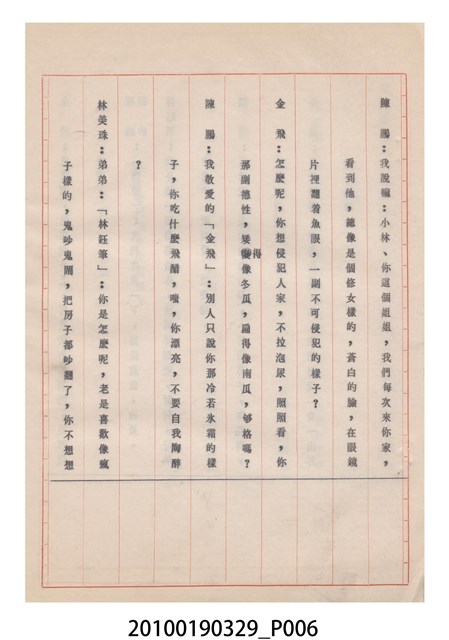 陳　鵬：我說嘛：小林、你這個姐姐，我們每次來你家，
看到他，總像是個修女樣的，蒼白的臉，在眼鏡
片裡翻着魚眼，一副不可侵犯的樣子？
金　飛：怎麼呢，你想侵犯人家，不拉泡尿，照照看，你
那副德性，矮得像冬瓜，扁得像南瓜，够格嗎？
陳　鵬：我敬愛的「金飛」：別人只說你那冷若氷霜的樣
子，你吃什麼飛醋，嗨，你漂亮，不要自我陶醉
？
林美珠：弟弟：「林鈺筆」：你是怎麼呢，老是喜歡像瘋
子樣的，鬼吵鬼鬧，把房子都吵翻了，你不想想
20100190329_P006